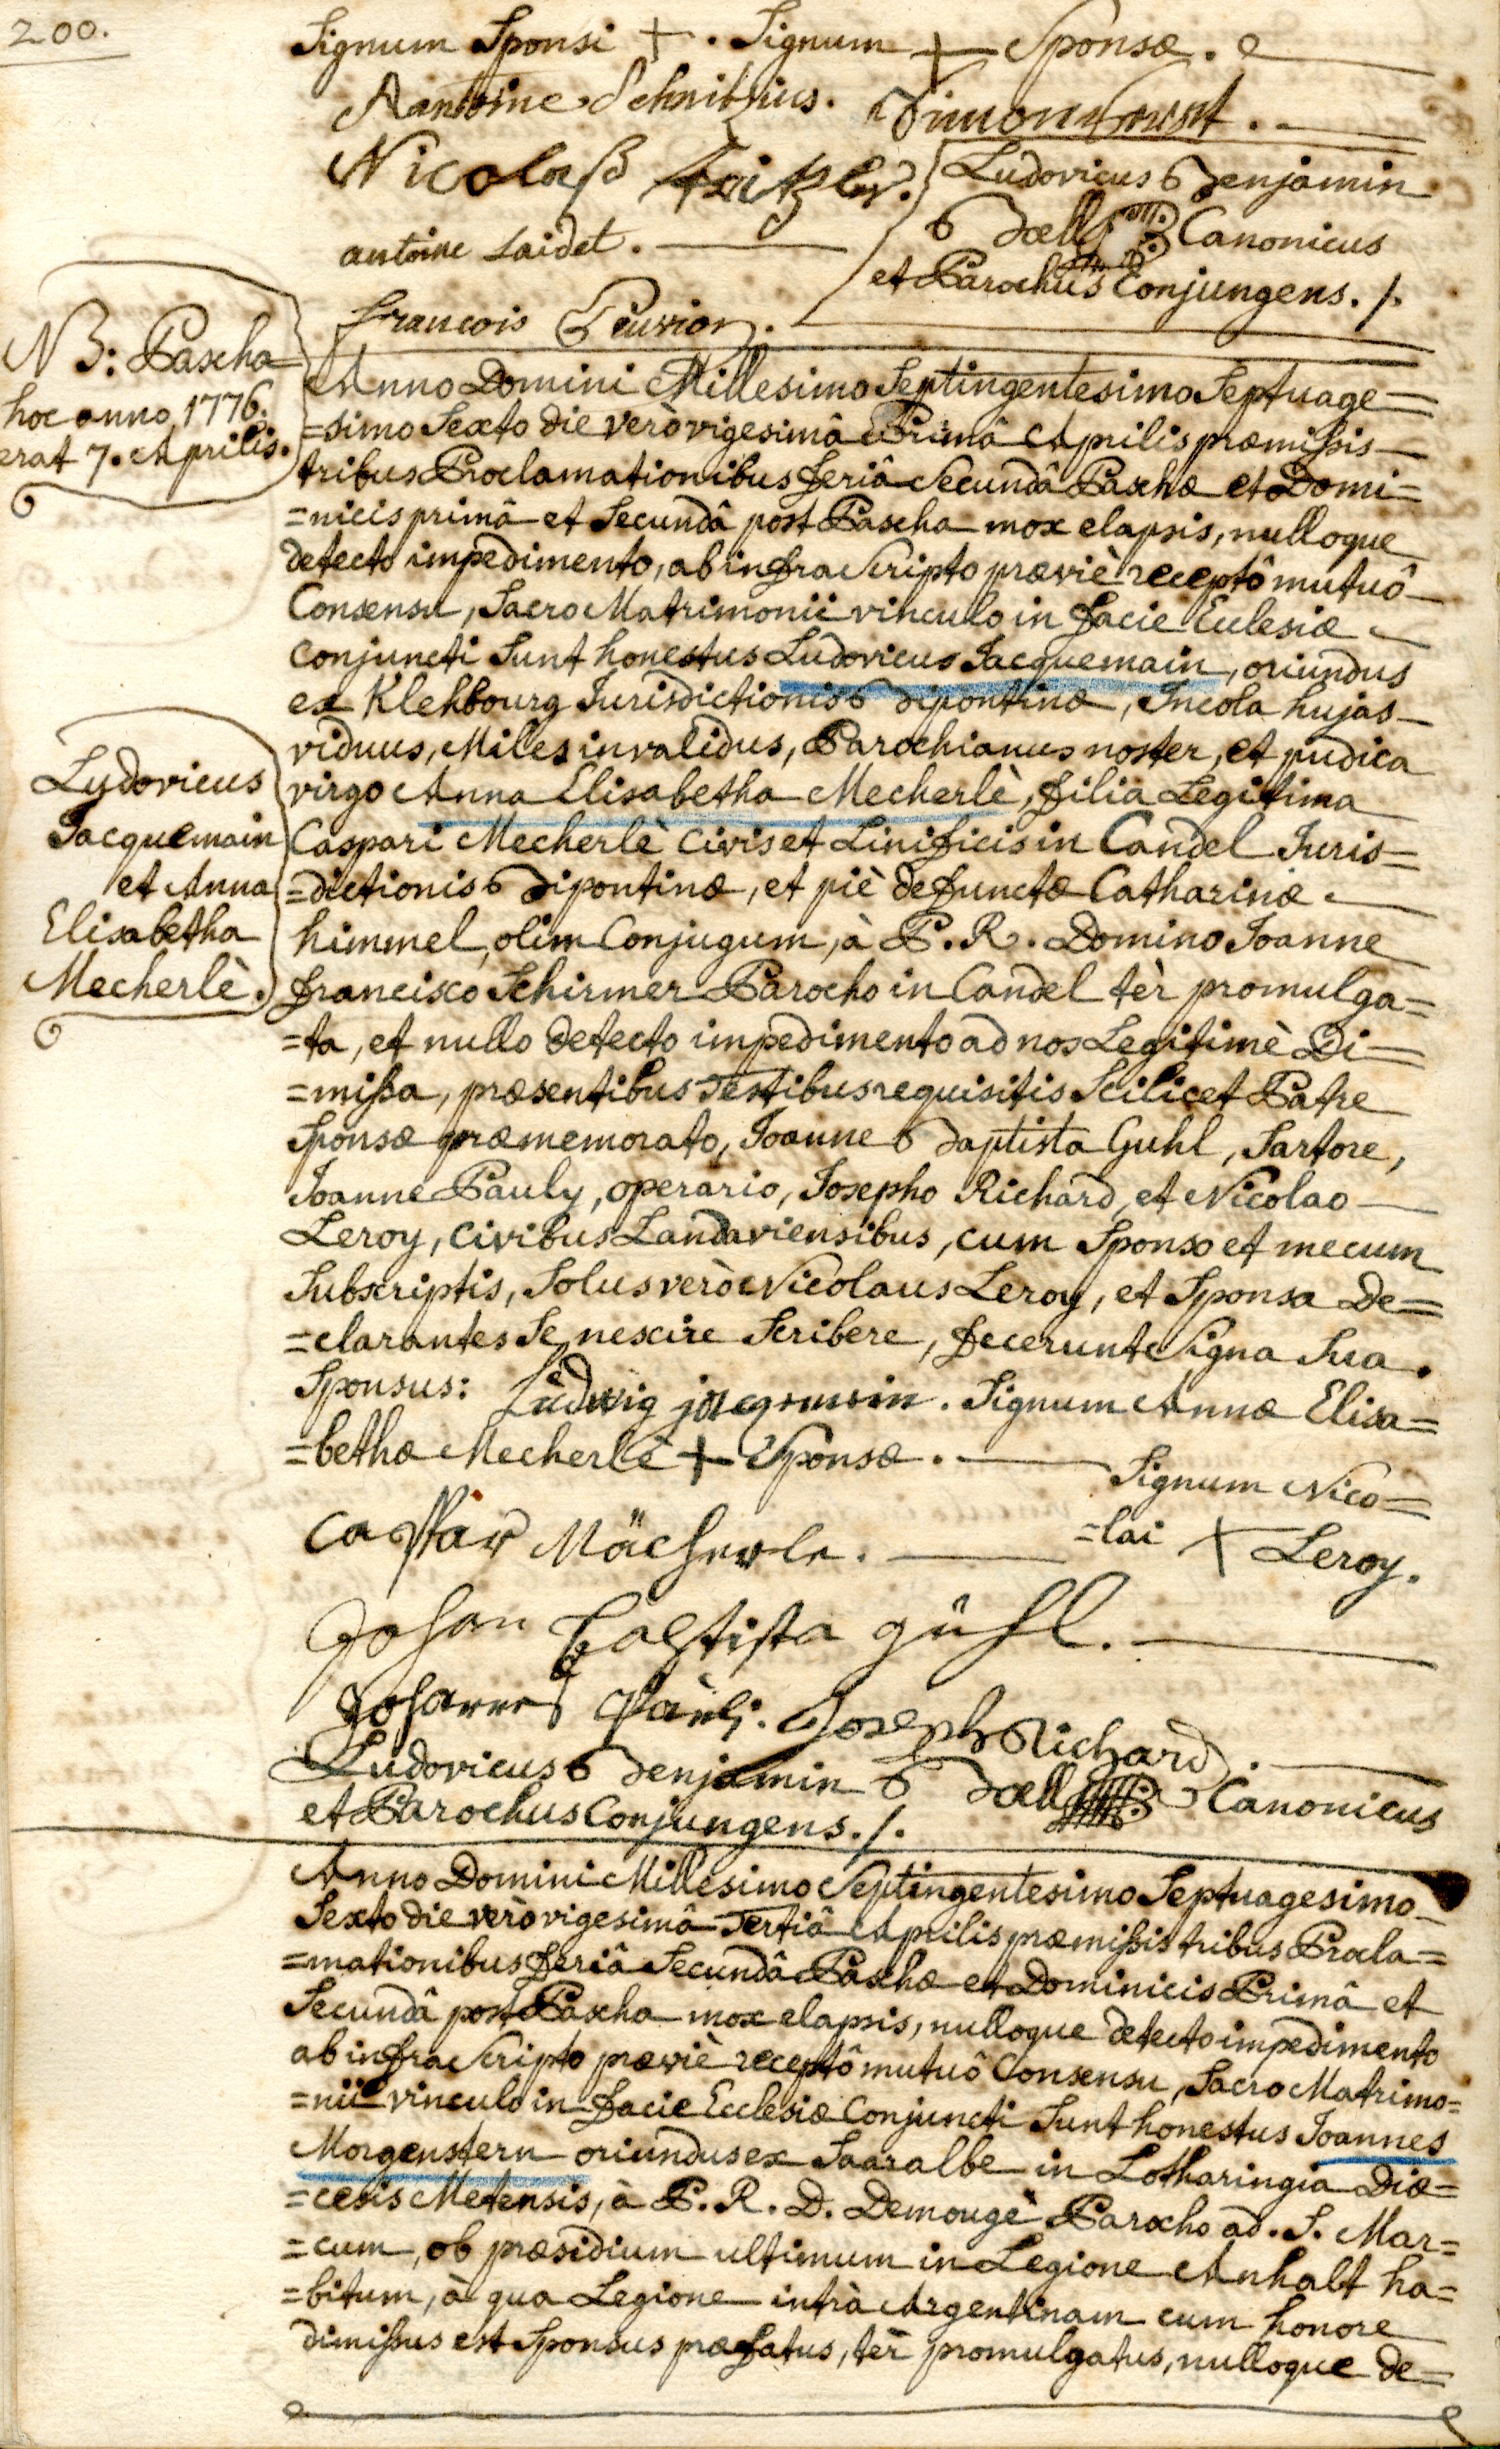 200.
Signum Sponsi + . Signum + Sponsæ .
Nicolaß
Ludovicus Benjamin
antoine Laidet .
Bœll Canonicus
et Parochus Conjungens ./.
francois
NB: Pascha
hoc anno 1776.
erat 7. Aprilis.
Anno Domini Millesimo Septingentesimo Septuage=
=simo Sexto die verò vigesimâ Primâ Aprilis præmißis
tribus Proclamationibus feriâ Secundâ Paschæ et Domi=
=nicis primâ et Secundâ post Pascha mox elapsis, nulloque
detecto impedimento, ab infra Scripto præviè receptô mutuô
Consensu, Sacro Matrimonii vinculo in facie Ecclesiæ
conjuncti Sunt honestus Ludovicus Jacquemain, oriundus
ex Klehbourg Jurisdictionis Bipontinæ, Incola hujas
viduus, Miles invalidus, Parochianus noster, et pudica
virgo Anna Elisabetha Mecherlè, filia Legitima
Ludovicus
Jacquemain
et Anna
Elisabetha
Mecherlè.
Caspari Mecherlè civis et Linificis in Candel Juris=
=dictionis Bipontinæ, et piè defunctæ Catharinæ
himmel, olim Conjugum, à P. R. Domino Joanne
francisco Schirmer Parocho in Candel tèr promulga=
=ta, et nullo detecto impedimento ad nos Legitimè Di=
=mißa, præsentibus Testibus requisitis Scilicet Patre
Sponsæ præmemorato, Joanne Baptista Guhl, Sartore,
Joanne Pauly, operario, Josepho Richard, et Nicolao
Leroy, civibus Landaviensibus, cum Sponso et mecum
Subscriptis, Solus verò Nicolaus Leroy, et Sponsa De=
=clarantes Se nescire Scribere, fecerunt Signa Sua .
Sponsus: Ludwig . Signum Annæ Elisa=
=bethæ Mecherlè + Sponsæ .
Signum Nico=
=lai + Leroy .
Caspar Mächerle .
Johan Baptista gühl .
Johannes Pauli . Joseph Richard .
Ludovicus Benjamin Bœll Canonicus
et Parochus Conjungens ./.
Anno Domini Millesimo Septingentesimo Septuagesimo
Sexto die verò vigesimâ Tertiâ Aprilis præmißis tribus Procla=
=mationibus feriâ Secundâ Paschæ et Dominicis Primâ et
Secundâ post Pascha mox elapsis, nulloque detecto impedimento
ab infra Scripto præviè receptô mutuô Consensu, Sacro Matrimo=
=nii vinculo in facie Ecclesiæ Conjuncti Sunt honestus Joannes
Morgenstern oriundus ex Saaralbe in Lotharingia Diœ=
=cesis Metensis, à P. R. D. Demougè Parocho ad . S. Mar=
=cum, ob præsidium ultimum in Legione Anhalt ha=
=bitum, à qua Legione intrà Argentinam cum honore
dimißus est Sponsus præfatus, tèr promulgatus, nulloque de=